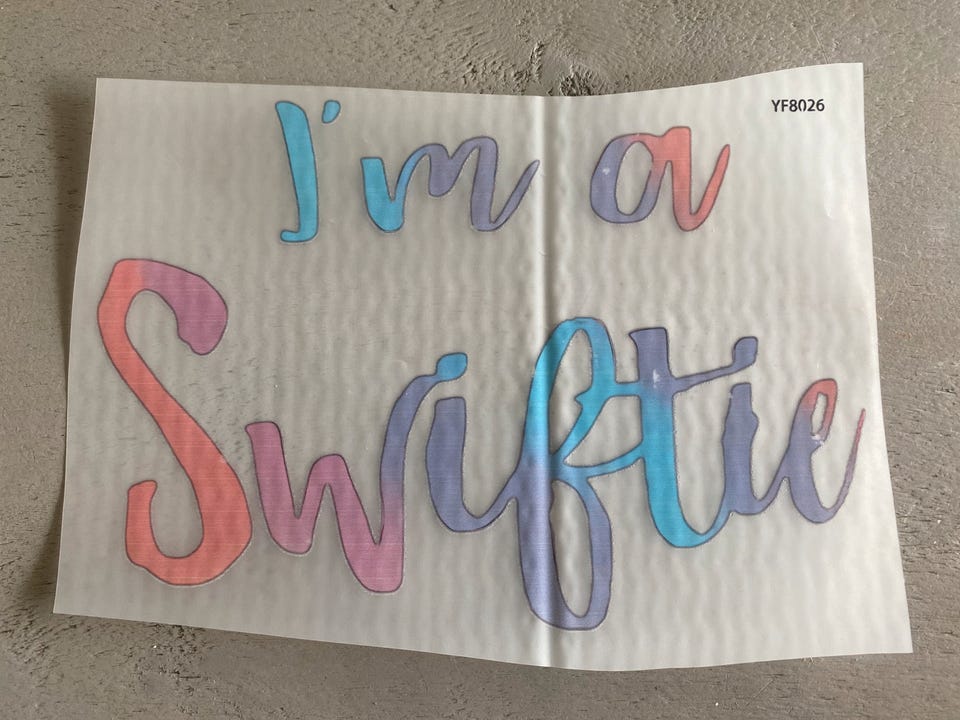 YF8026
I'm a
Swiftie